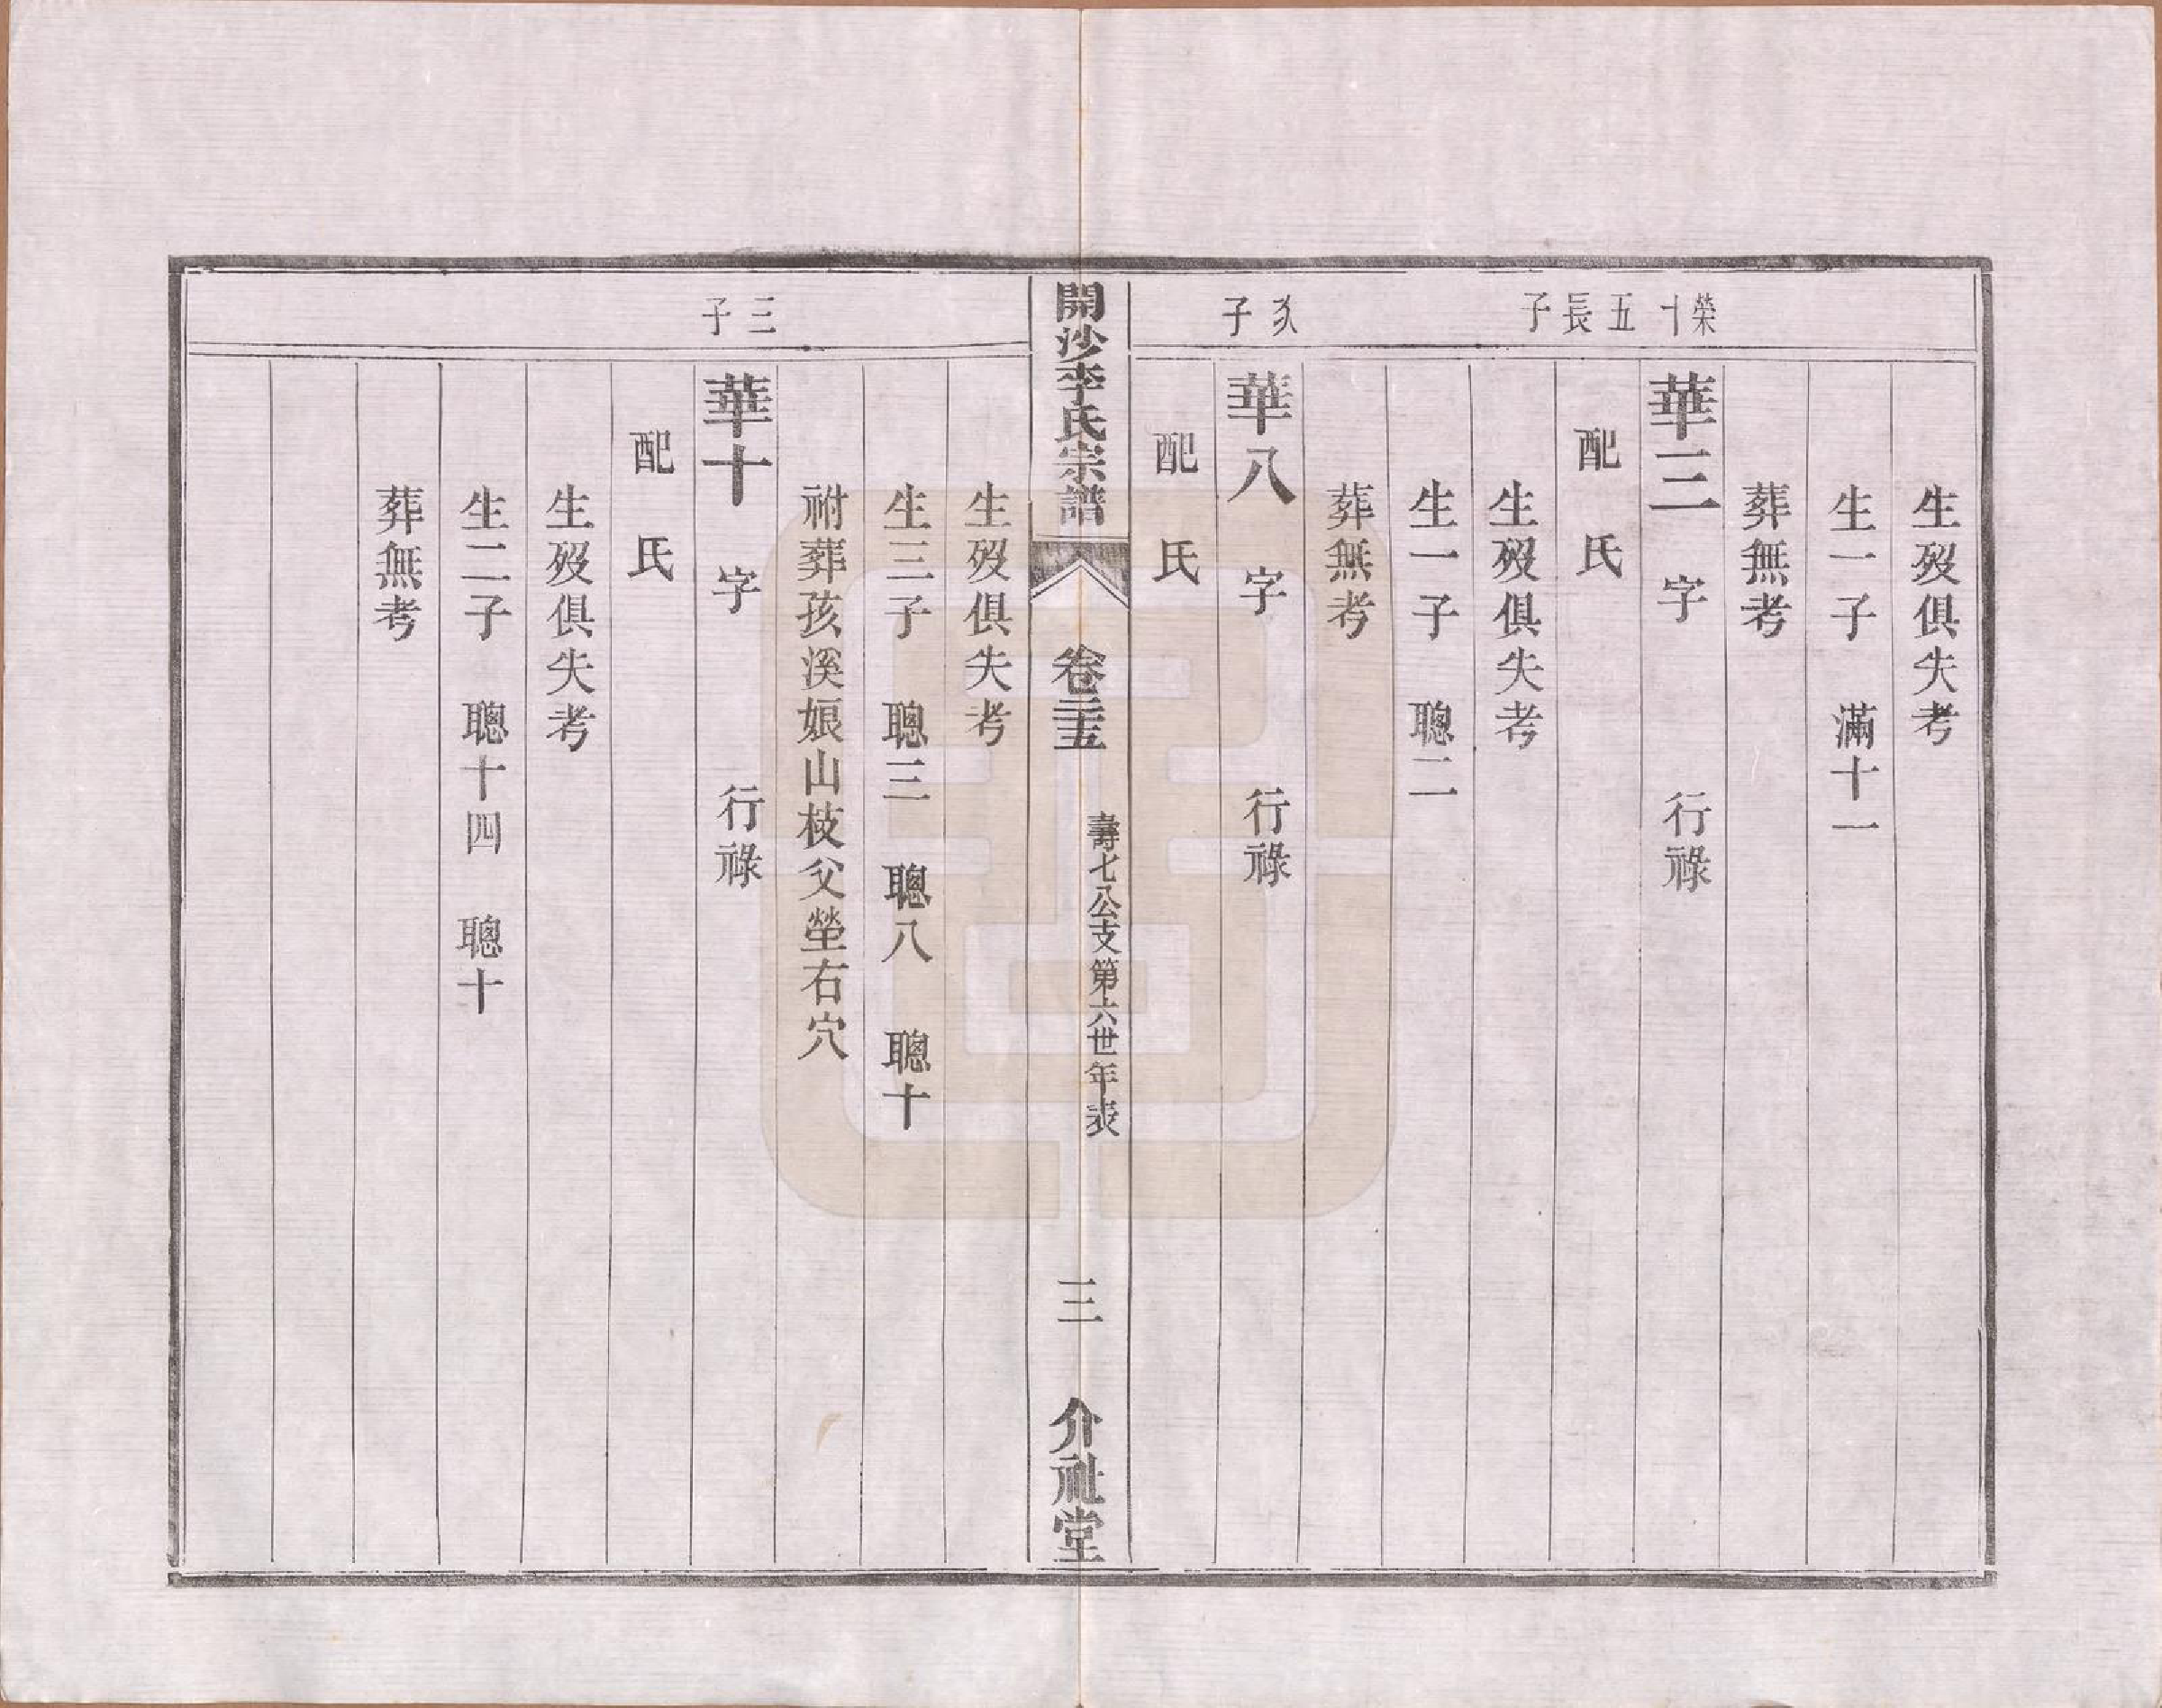 生歿俱失考
生一子 滿十一
葬無考
榮十五長子
華三 字 行祿
配 氏
生歿俱失考
生一子 聰二
葬無考
次子
華八 字 行祿
配 氏
開沙李氏宗譜 卷二五 壽七八公支第六世年表 三 介祉堂
生歿俱失考
生三子 聰三 聰八 聰十
祔葬孩溪娘山枝父塋右穴
三子
華十 字 行祿
配 氏
生歿俱失考
生二子 聰十四 聰十
葬無考